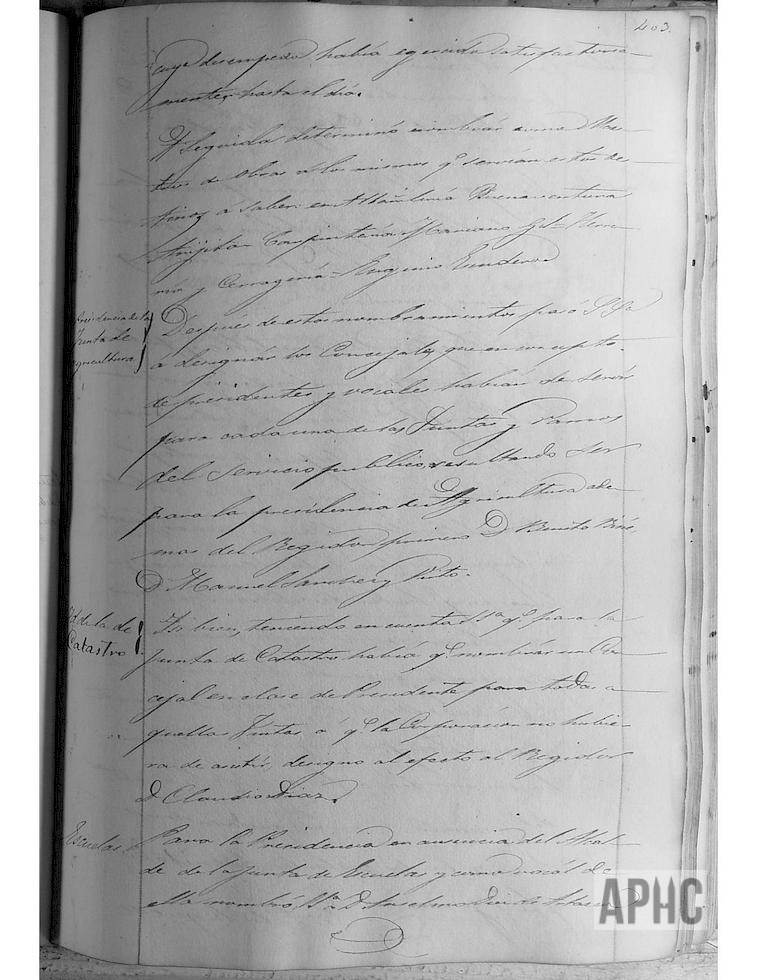 403.
cuyo desempeño había egercido satisfactoria-
mente hasta el día.
Seguida determinó nombrar como Maes-
tros de Obras de los mismos q.e servían estos des-
tinos á saber: en Albañilería Buenaventura
Carpintería Mariano Gil Herre-
ria y Cerragería Eugenio
Presidencia de la
Junta de
Agricultura
Después de estos nombramientos pasó S Sa
á designar los Concejales que en concepto
de presidentes y vocales habían de servir
para cada una de las Juntas y Ramos
del servicio publico, resultando ser
para la presidencia de Agricultura ade-
mas del Regidor primero D Benito
D Manuel Sanchez y Pinto.
Id de la de
Catastro
Si bien, teniendo en cuenta S.a q.e para la
Junta de Catastro había q.e nombrar un Con-
cejal en clase de Presidente para todas a-
quellas Juntas á q.e la Corporación no hubie-
ra de asistir, designo al efecto al Regidor
D Claudio Diaz.
Escuelas
Para la Presidencia en ausencia del Alcal-
de de la Junta de Escuelas y como vocál de
ella nombró S.a D Anselmo
APHC